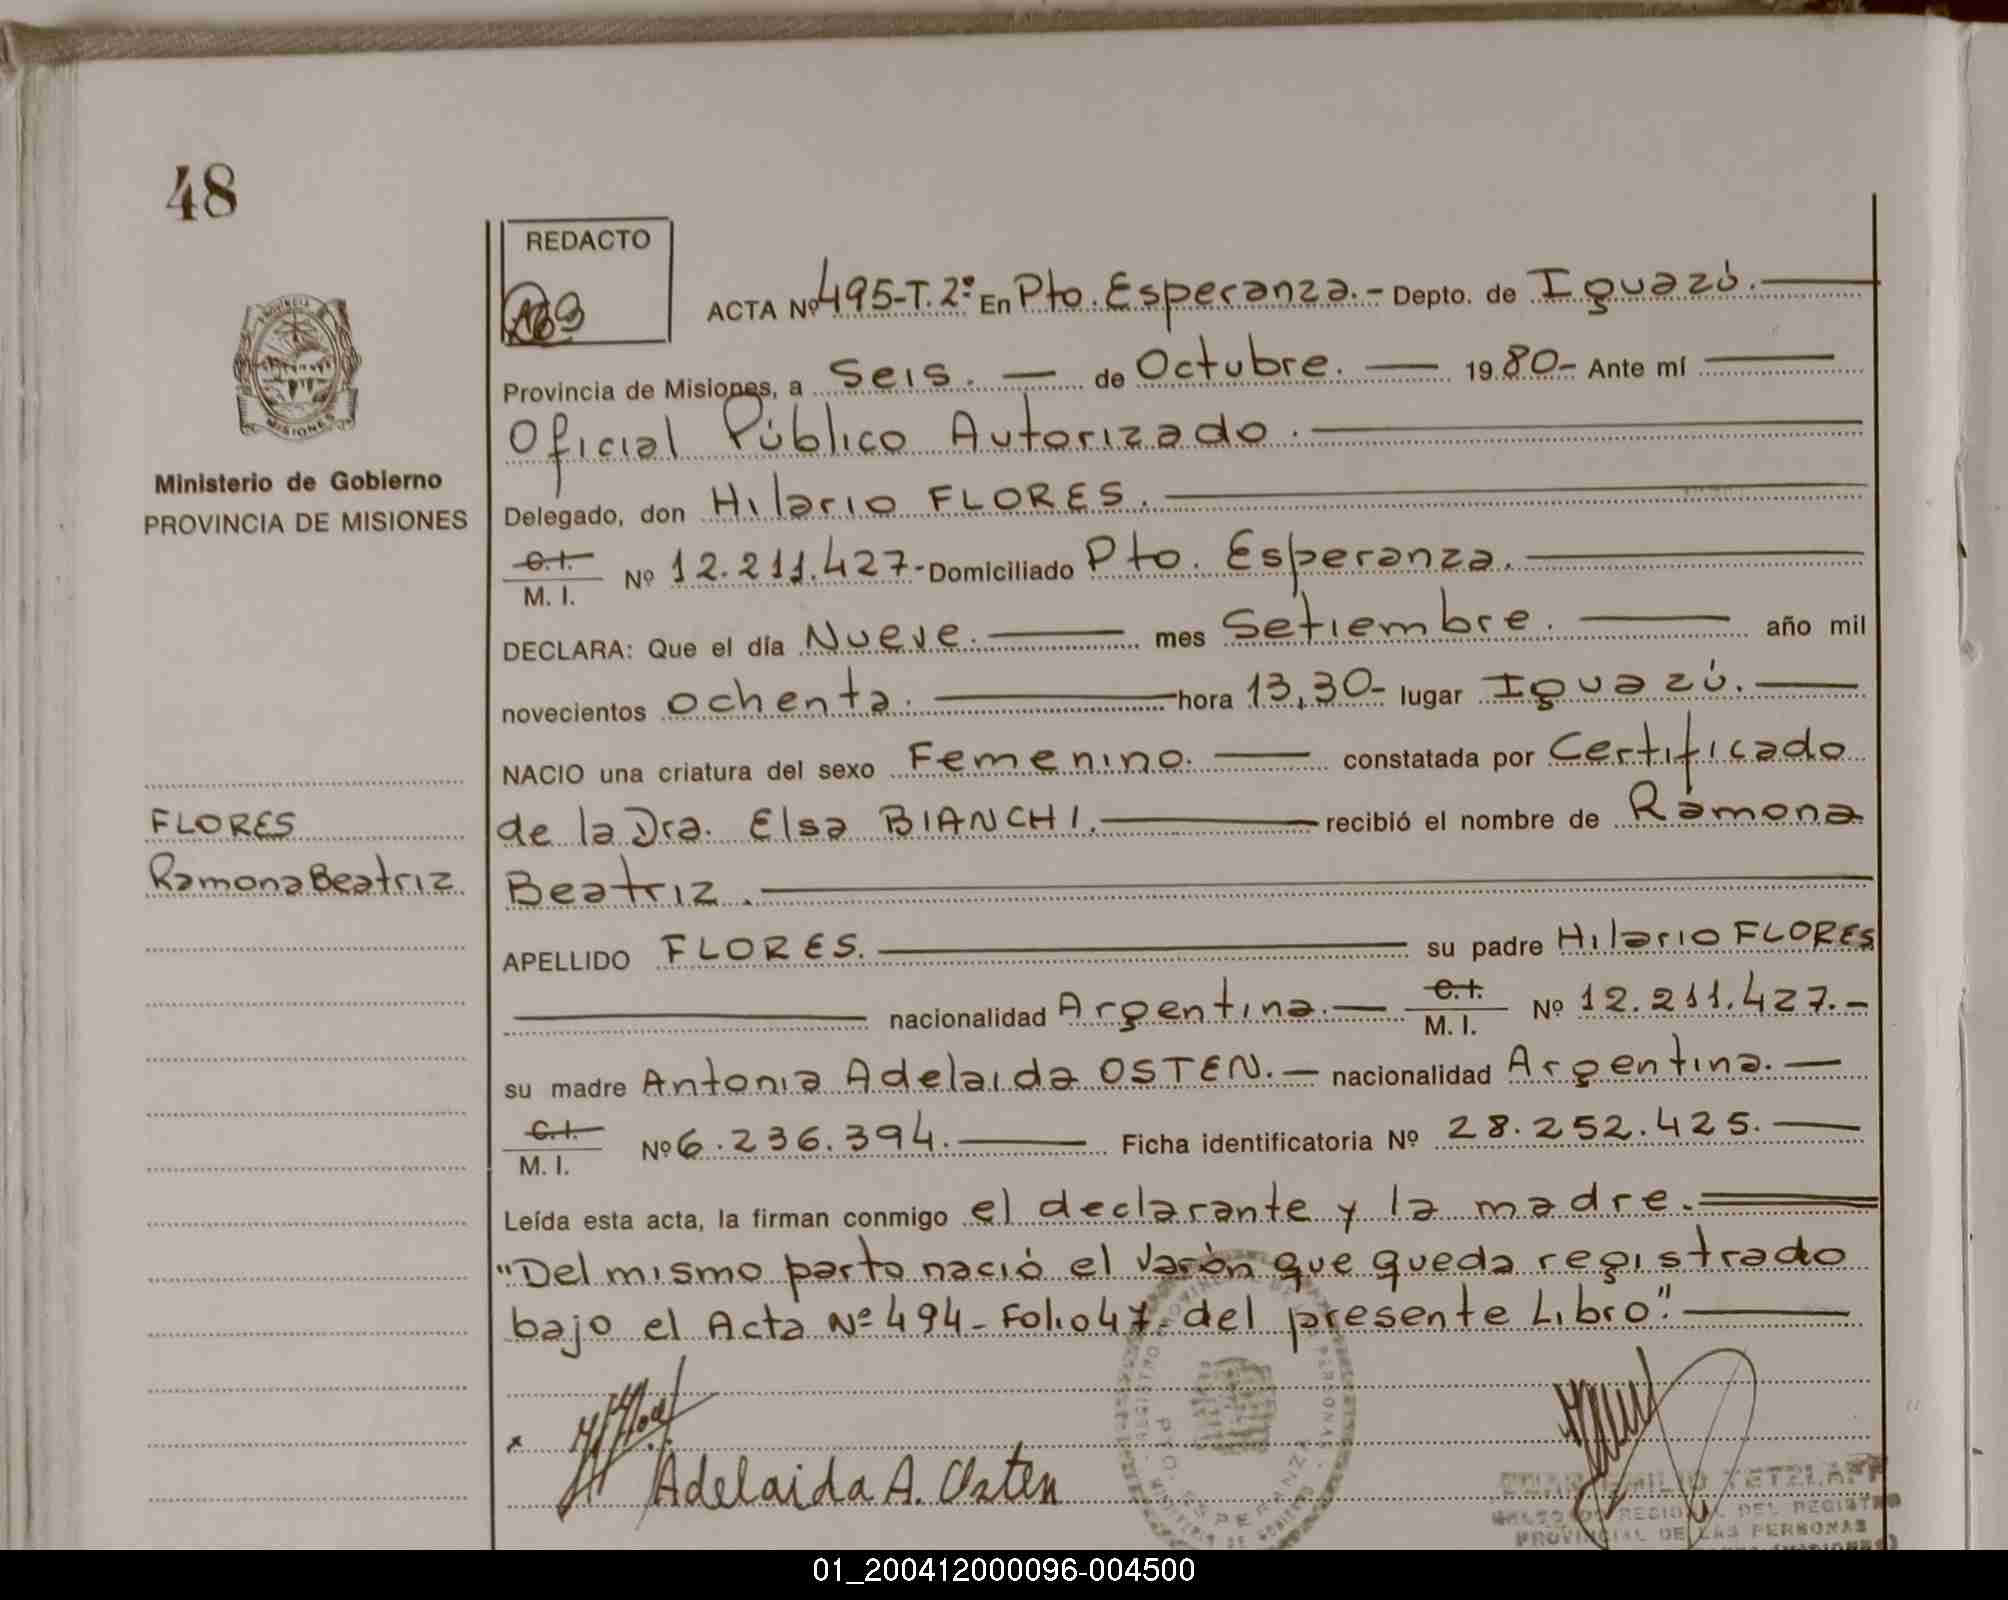 48
REDACTO
ACTA Nº 495-T.2º En Pto. Esperanza.- Depto. de Iguazú.
Provincia de Misiones, a Seis. de Octubre. 1980- Ante mí
Oficial Público Autorizado.
Delegado, don Hilario FLORES.
C.I.
M. I. Nº 12.211.427- Domiciliado Pto. Esperanza.
DECLARA: Que el día Nueve. mes Setiembre. año mil
novecientos ochenta. hora 13,30- lugar Iguazú.
NACIO una criatura del sexo Femenino. constatada por Certificado
de la Dra. Elsa BIANCHI. recibió el nombre de Ramona
Beatriz.
APELLIDO FLORES. su padre Hilario FLORES
nacionalidad Argentina. C.I.
M. I. Nº 12.211.427.-
su madre Antonia Adelaida OSTEN.- nacionalidad Argentina.-
C.I.
M. I. Nº 6.236.394. Ficha identificatoria Nº 28.252.425.
Leída esta acta, la firman conmigo el declarante y la madre.
"Del mismo parto nació el varón que queda registrado
bajo el Acta Nº 494- Folio 47- del presente Libro".
Adelaida A. Osten
PROVINCIA
MISIONES
Ministerio de Gobierno
PROVINCIA DE MISIONES
FLORES
Ramona Beatriz
EMILIO TETZLAFF
REGIONAL DEL REGISTRO
PROVINCIAL DE LAS PERSONAS
01_200412000096-004500